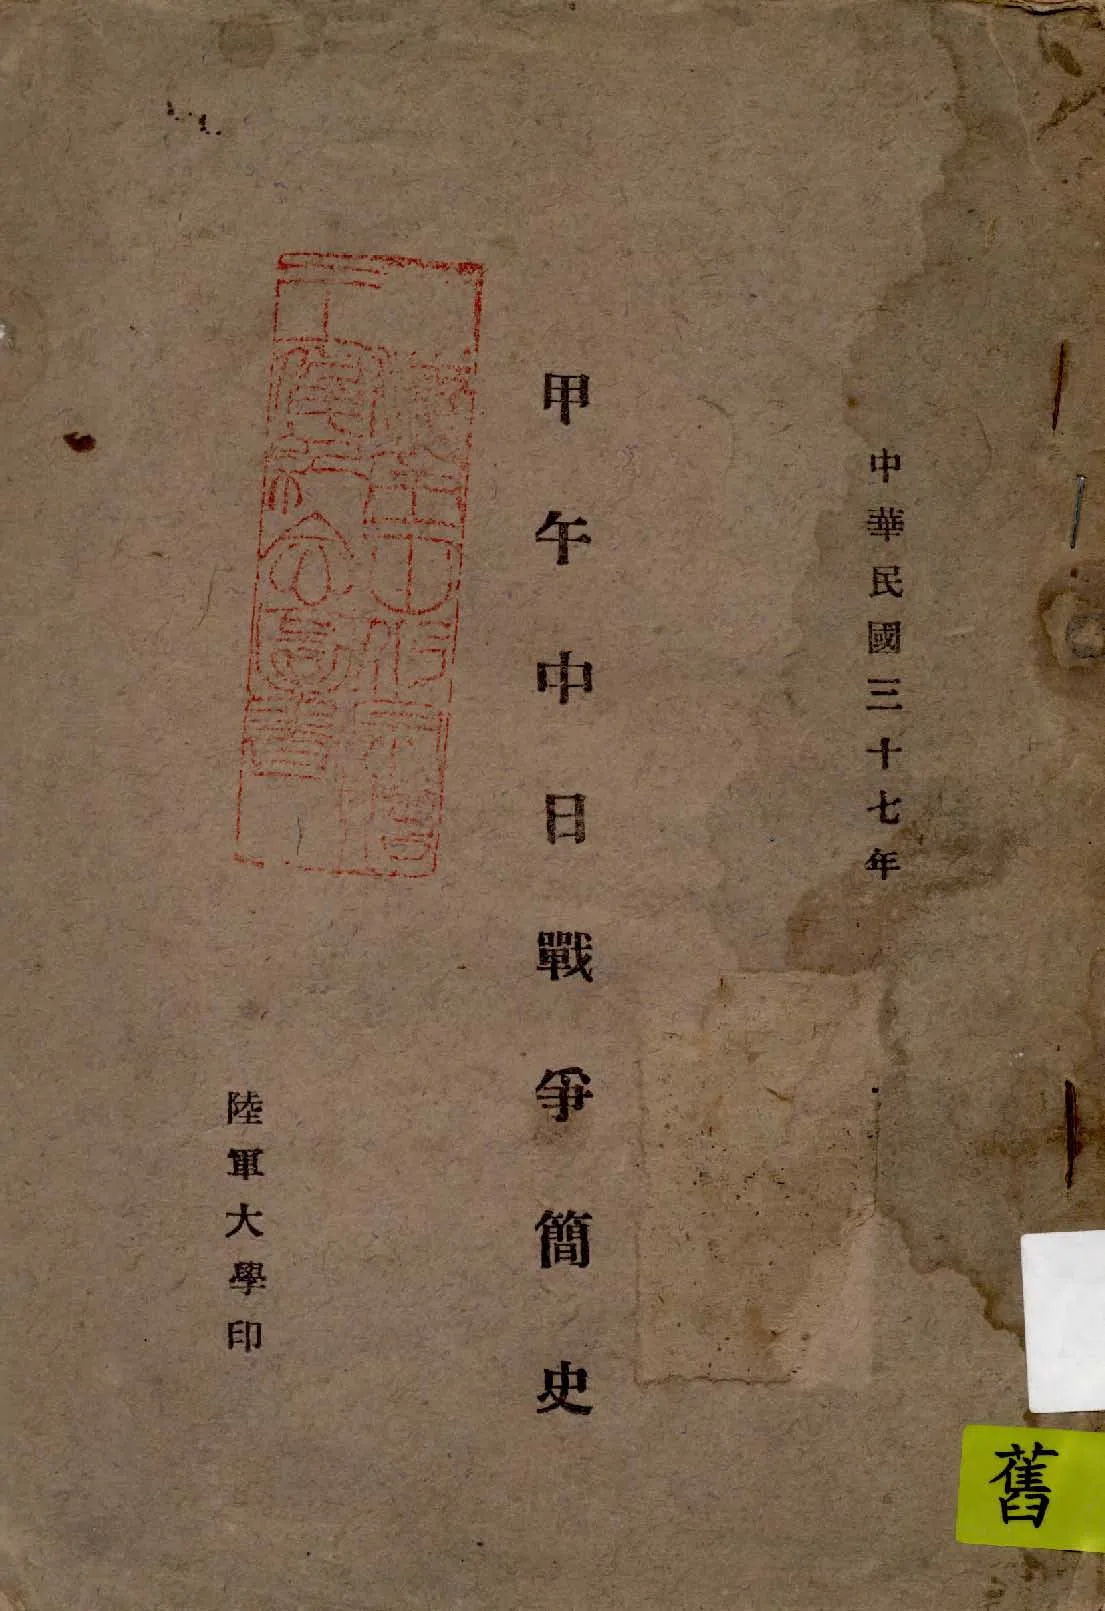 中華民國三十七年
甲午中日戰爭簡史
陸軍大學印
舊